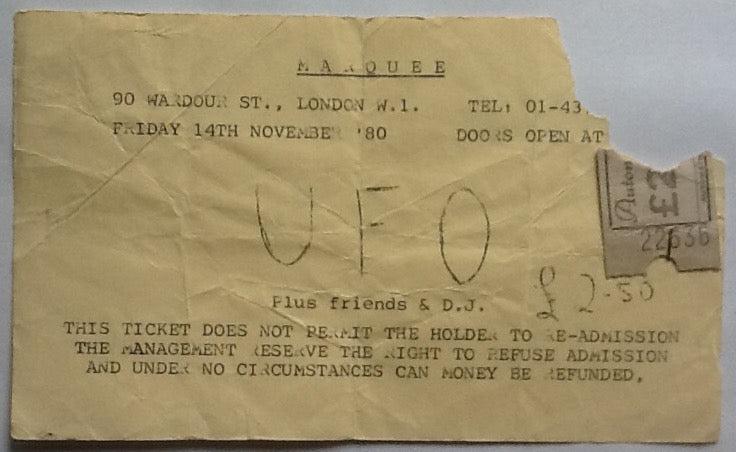 MARQUEE
90 WARDOUR ST., LONDON W.1. TEL: 01-43
FRIDAY 14TH NOVEMBER '80 DOORS OPEN AT
UFO
Auton
£2
22636
£2-50
Plus friends & D.J.
THIS TICKET DOES NOT PERMIT THE HOLDER TO RE-ADMISSION
THE MANAGEMENT RESERVE THE RIGHT TO REFUSE ADMISSION
AND UNDER NO CIRCUMSTANCES CAN MONEY BE REFUNDED.